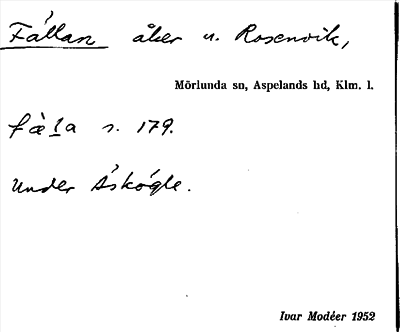 Fállan åker u. Rosenvik,
Mörlunda sn, Aspelands hd, Klm. l.
fæ̀l̲a s. 179.
under Åskógle.
Ivar Modéer 1952